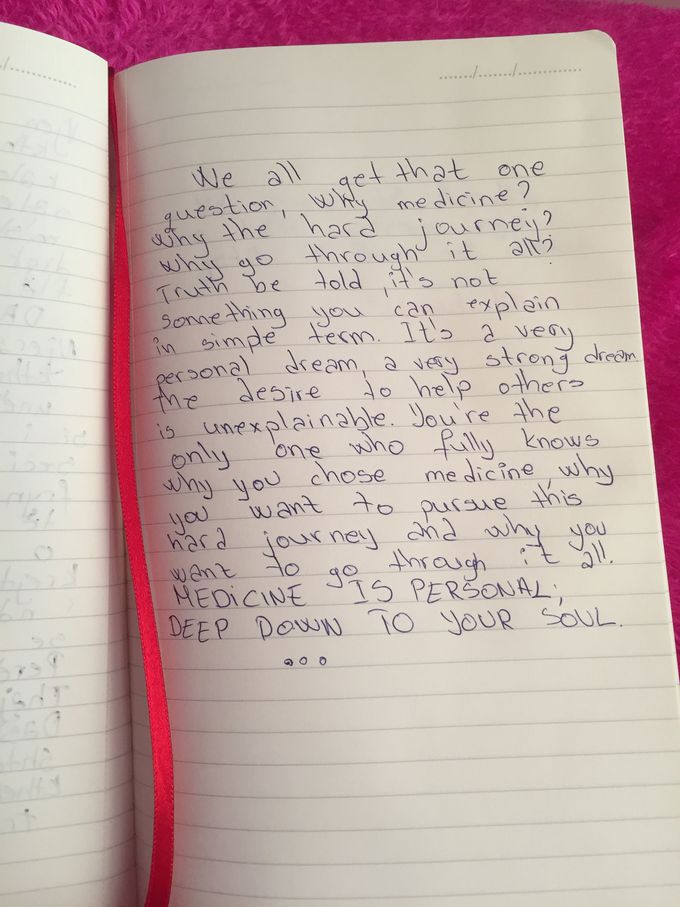 ......./......./.............
We all get that one
question, why medicine?
why the hard journey?
why go through it all?
Truth be told, it's not
something you can explain
in simple term. It's a very
personal dream, a very strong dream
the desire to help others
is unexplainable. You're the
only one who fully knows
why you chose medicine, why
you want to pursue this
hard journey and why you
want to go through it all.
MEDiCINE IS PERSONAL;
DEEP DOWN TO YOUR SOUL.
...